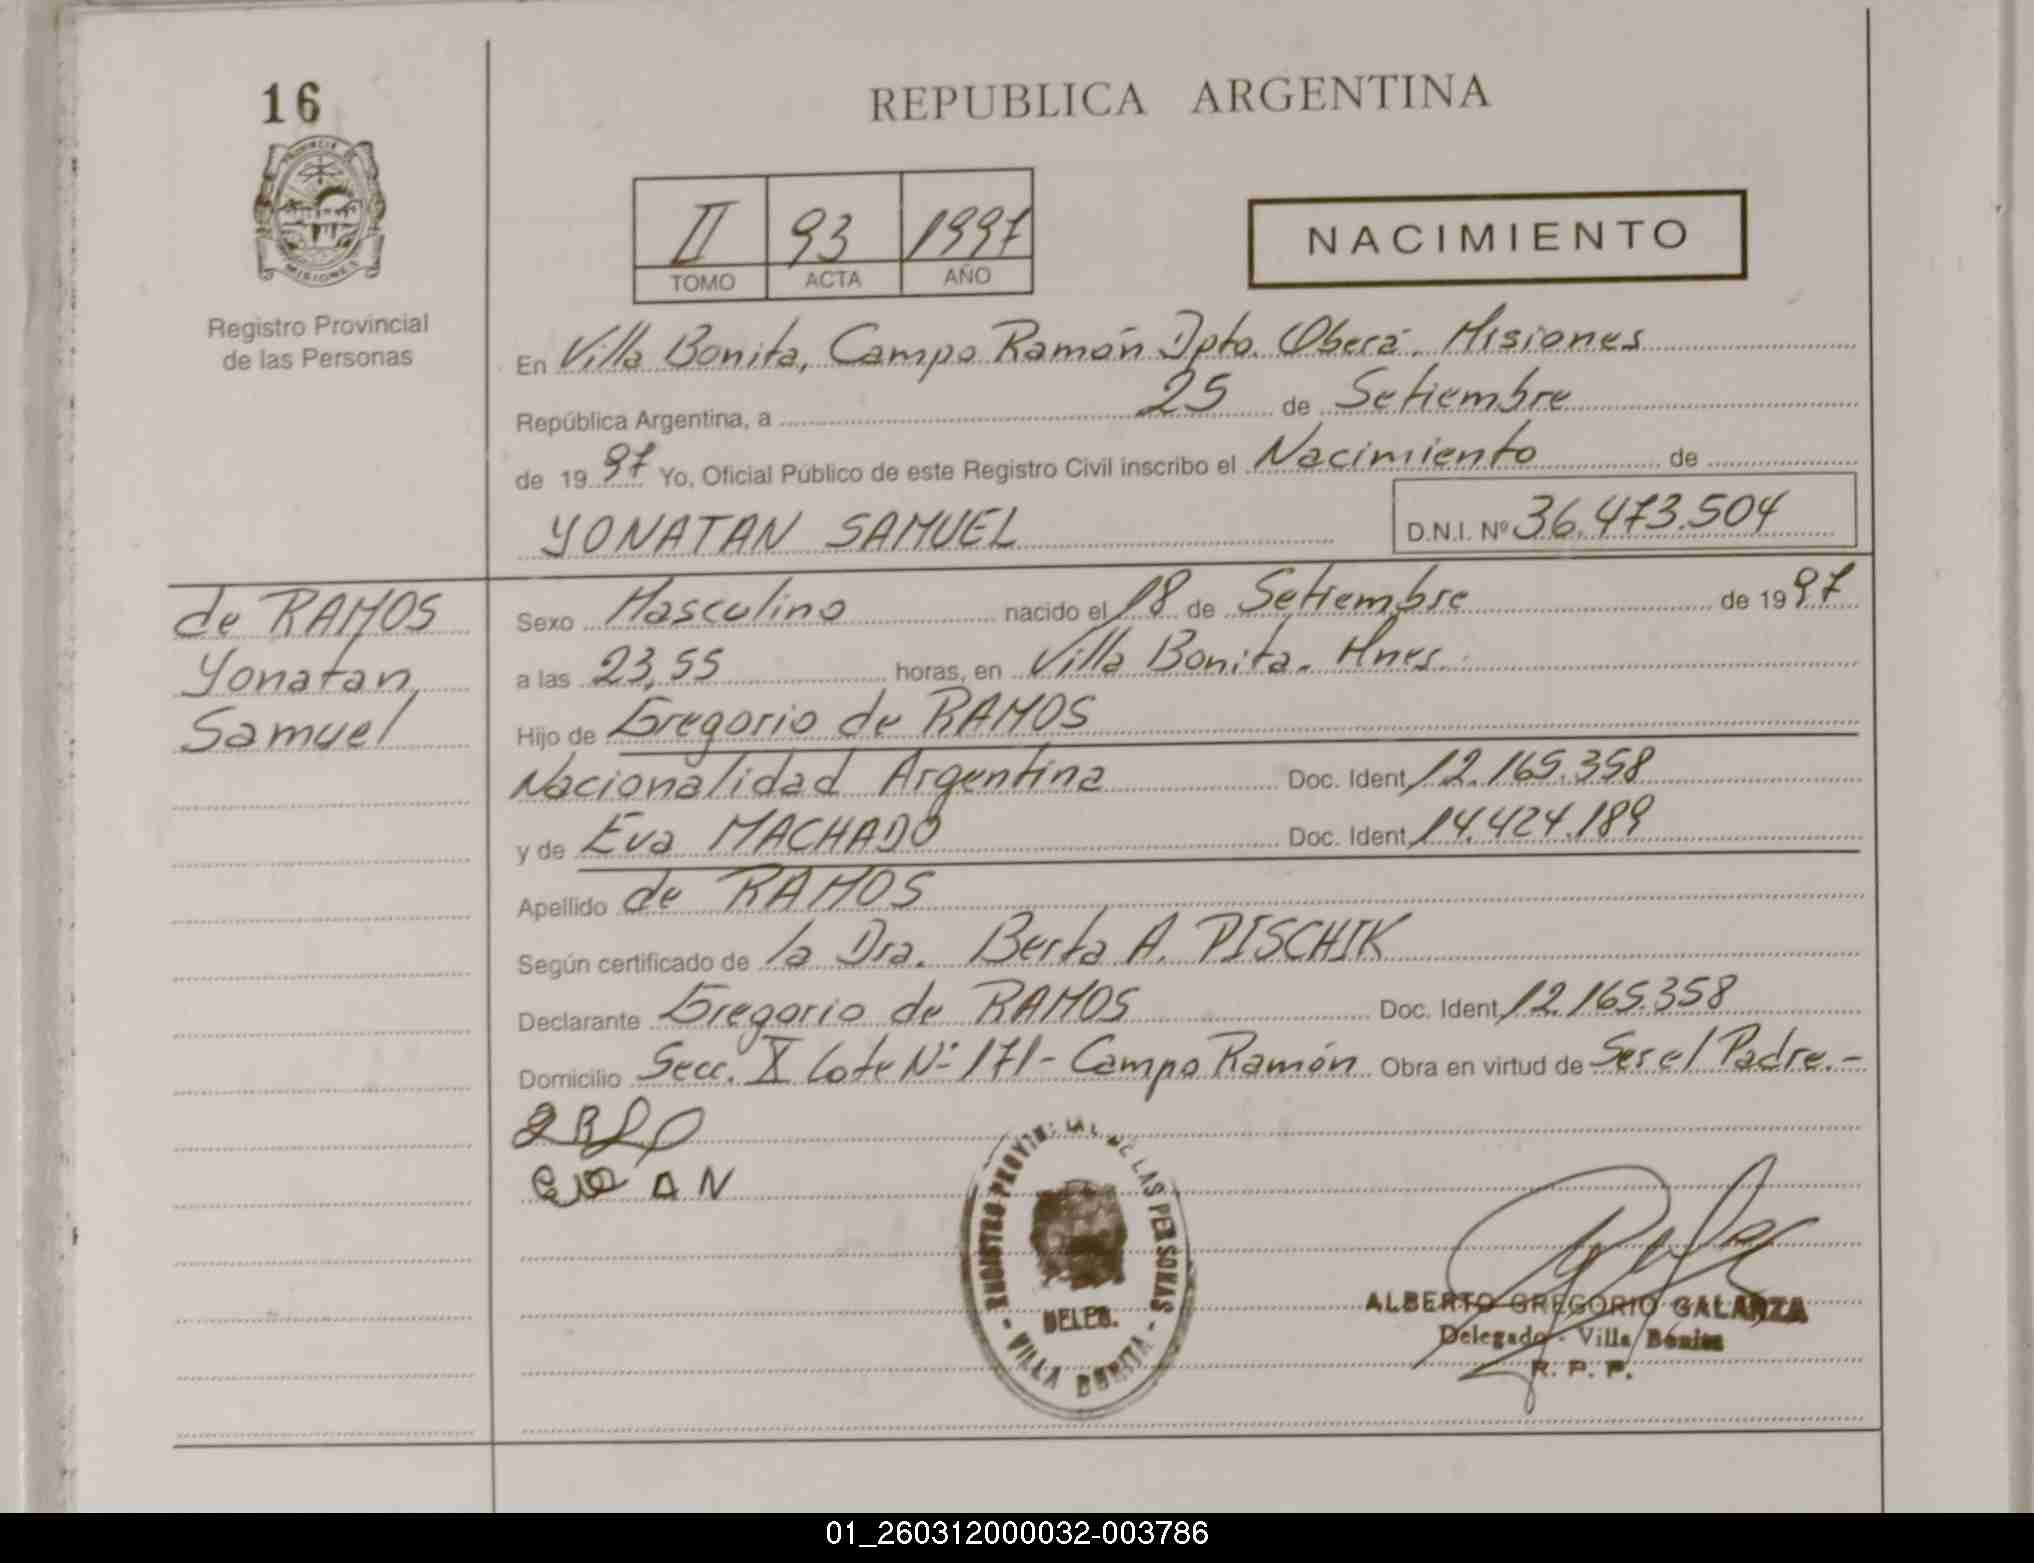 16
PROVINCIA DE
MISIONES
Registro Provincial
de las Personas
REPUBLICA ARGENTINA
II 93 1997
TOMO ACTA AÑO
NACIMIENTO
En Villa Bonita, Campo Ramón Dpto. Oberá. Misiones
República Argentina, a 25 de Setiembre
de 1997 Yo, Oficial Público de este Registro Civil inscribo el Nacimiento de
YONATAN SAMUEL D.N.I. Nº 36.473.504
de RAMOS
Yonatan,
Samuel
Sexo Masculino nacido el 18 de Setiembre de 1997
a las 23,55 horas, en Villa Bonita. Mnes.
Hijo de Gregorio de RAMOS
Nacionalidad Argentina Doc. Ident. 12.165.358
y de Eva MACHADO Doc. Ident. 14.424.189
Apellido de RAMOS
Según certificado de la Dra. Berta A. PISCHIK
Declarante Gregorio de RAMOS Doc. Ident. 12.165.358
Domicilio Secc. X Lote Nº 171 - Campo Ramón Obra en virtud de Ser el Padre.-
REGISTRO PROVINCIAL DE LAS PERSONAS
DELEG.
- VILLA BONITA -
ALBERTO GREGORIO GALARZA
Delegado - Villa Bonita
R. P. P.
01_260312000032-003786